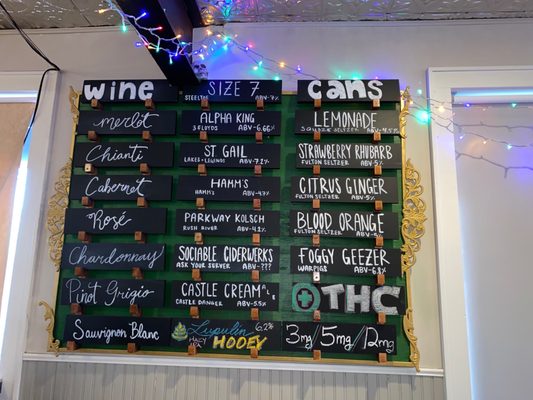 wine
merlot
Chianti
Cabernet
Rosé
Chardonnay
Pinot Grigio
Sauvignon Blanc
SIZE 7
STEELTOE ABV-7%
ALPHA KING
3 FLOYDS ABV-6.66%
ST GAIL
LAKES & LEGENDS ABV-7.2%
HAMM'S
HAMM'S ABV-4.7%
PARKWAY KOLSCH
RUSH RIVER ABV-4.2%
SOCIABLE CIDERWERKS
ASK YOUR SERVER ABV-???
CASTLE CREAM ALE
CASTLE DANGER ABV-5.5%
Lupulin 6.2%
HAZY IPA HOOEY
cans
LEMONADE
FULTON SELTZER ABV-4.5%
STRAWBERRY RHUBARB
FULTON SELTZER ABV-5%
CITRUS GINGER
FULTON SELTZER ABV-5%
BLOOD ORANGE
FULTON SELTZER ABV-5%
FOGGY GEEZER
WARPIGS ABV-6.8%
THC
3mg/5mg/12mg